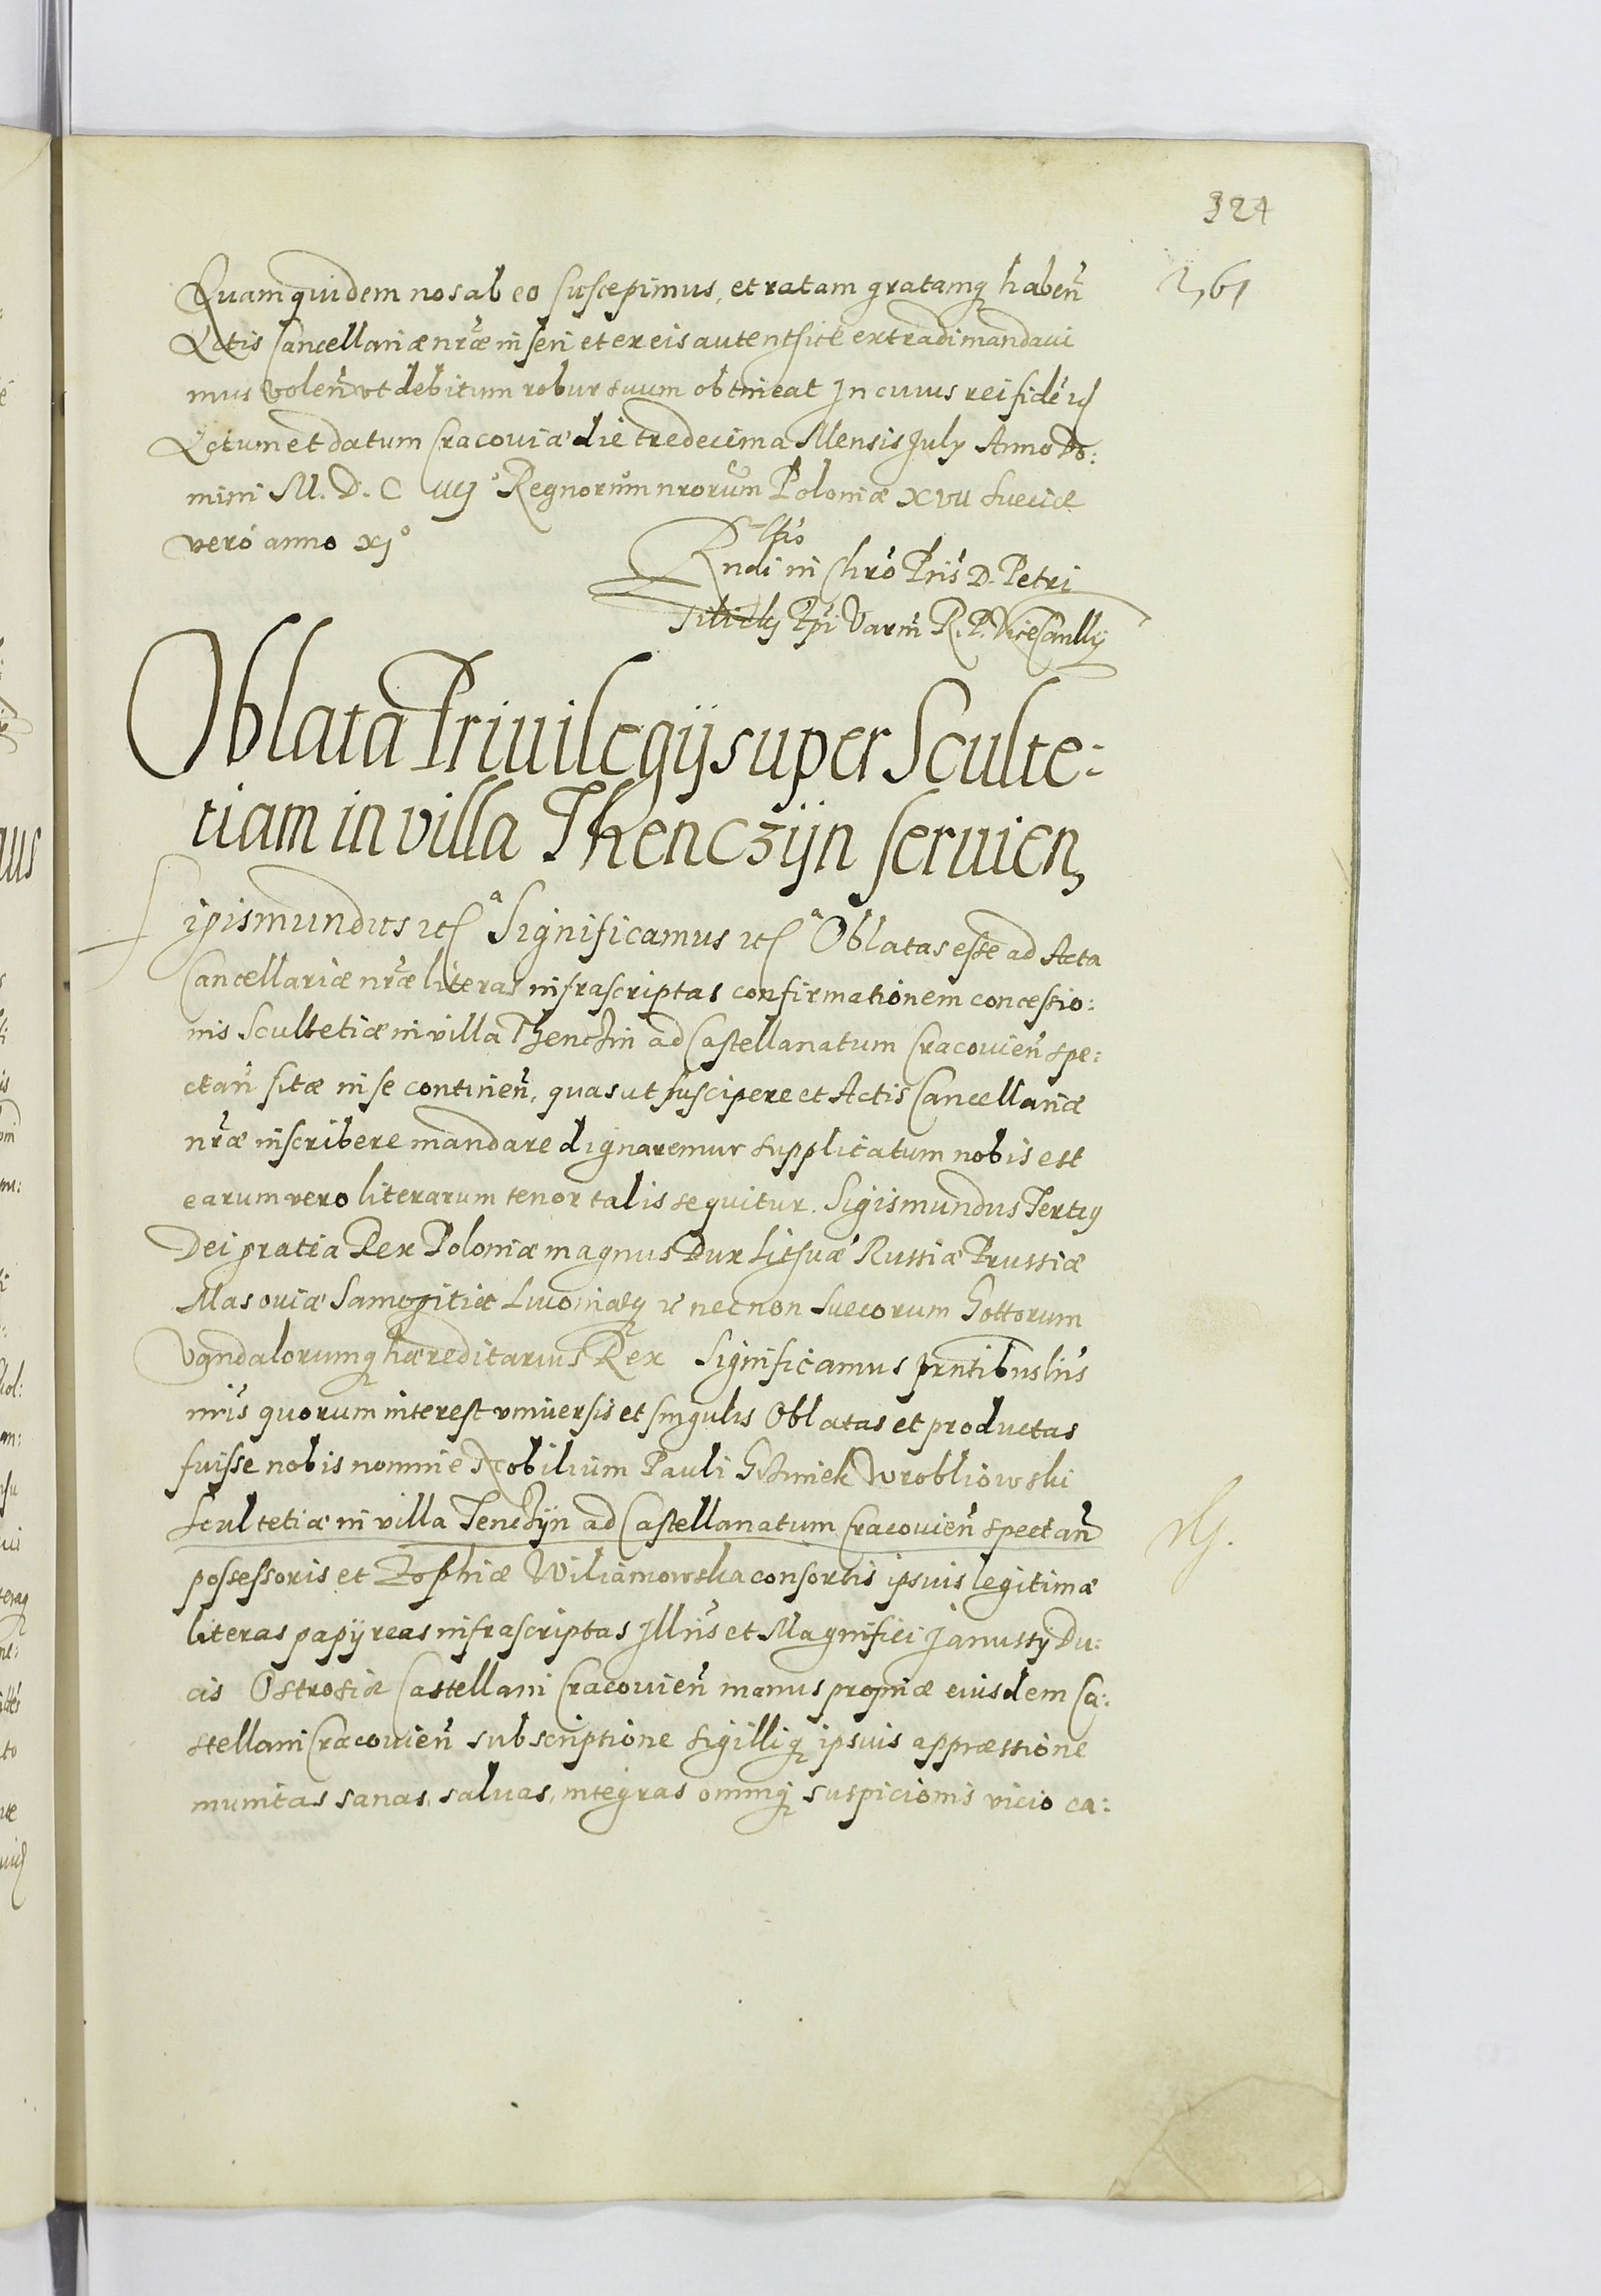 324
Quam quidem nos ab eo suscepimus, et ratam gratamq haben̄
Actis Cancellariæ nr̄æ inseri et ex eis autenthicè extradi mandaui
mus volen̄ vt debitum robur suum obtineat In cuius rei fidē
Actum et datum Cracoviæ die tredecima Mensis July Anno Do:
mini M. D. C iiij° Regnorum nrorum Poloniæ XVII Sueciæ
vero anno xj°
Rndi in Chrō Pris D. Petri
Epi Varm̄ R. P. ViceCancllij
Oblata Priuilegij super Sculte:
tiam in villa Thenczijn seruien,
Sigismundus etc Significamus etc Oblatas esse ad Acta
Cancellariæ nr̄æ literas infrascriptas confirmationem concessio:
nis Scultetiæ in villa Thenczin ad Castellanatum Cracouien̄ spe:
ctan̄ sitæ in se continen̄, quas ut suscipere et Actis Cancellariæ
nr̄æ inscribere mandare dignaremur supplicatum nobis est
earum vero literarum tenor talis sequitur. Sigismundus Tertiy
Dei gratia Rex Poloniæ magnus Dux Lithuæ Russiæ Prussiæ
Masouiæ Samogitiæ Liuoniæq etc necnon Suecorum Gottorum
Vandalorumq hæreditarius Rex Significamus prntibus lris
nris quorum interest vniuersis et singulis Oblatas et productas
fuisse nobis nomine Nobilium Pauli Wrobliowski
Scultetiæ in villa Tenczijn ad Castellanatum Cracouien̄ spectan̄
possessoris et Zophiæ Wiliamowska consortis ipsuis legitimæ
literas papijreas infrascriptas Illris et Magnifici Janussij Du:
cis Ostrosiæ Castellani Cracouien̄ manus propriæ eiusdem Ca:
stellani Cracouien̄ subscriptione sigilliq ipsuis appræssione
munitas sanas, saluas, integras omniq suspicionis vicio ca: